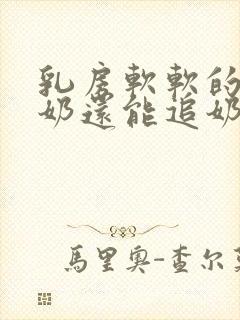 乳房軟軟的
奶還能追奶
馬里奧-查尔莫